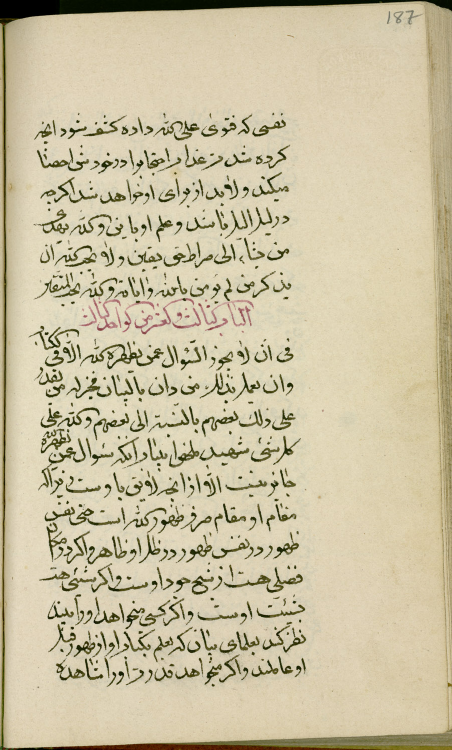 187
نفسی که فتوی علی الله داده کشف شود آنچه
کرده شد در عذاب را حجابا در خود شی احصا
میکند و لابد از برای او خواهد شد اگرچه
در لیل اللیل باشد و علم او باین و کله یهدی
من یشاء الی صراط حق یقین و لا یحد کله ان
یذکر من لم یؤمن بالله و آیاته و کله
الباب الثالث و العشر من الواحد الثالث
فی ان لا یجوز السؤال عمن یظهره الله الا فی کتاب
وان یعملن بذلک من دان بالبیان
علی ذلک بعضهم بالنسبة الی بعضهم و کله علی
کل شئ شهید ملخص این باب آنکه سؤال عمن یظهره الله
جایز نیست الا از آنچه لایق باوست زیرا که
مقام او مقام صرف ظهور الله است حتی نفس
ظهور در نفس ظهور در ظل او ظاهر و اگر در امکان
فضلی هست از شبح جود اوست و اگر شیئی هست
بشیئیت اوست و اگر کسی میخواهد او را بیند
نظر کند بعلمای بیان که بعلم بکتاب او از ظهور قبل
او عالمند و اگر میخواهد قدرت او را مشاهده